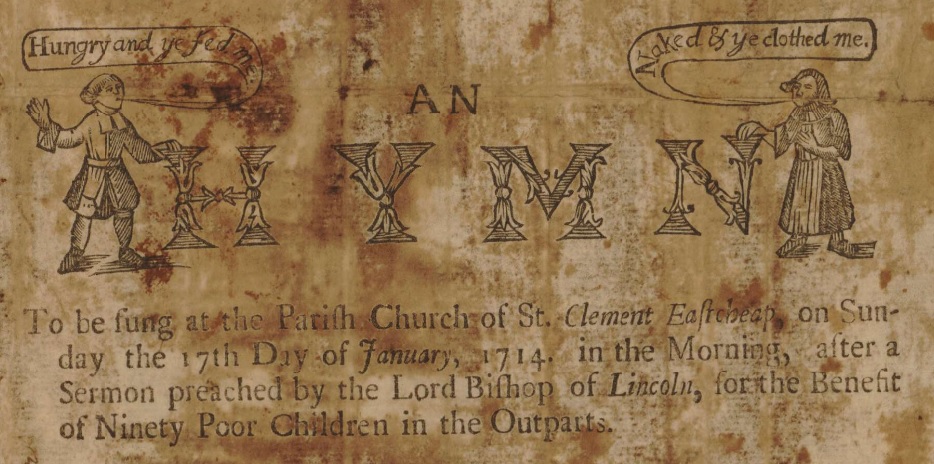 Hungry and ye fed me.
Naked & ye clothed me.
AN
HYMN
To be ſung at the Pariſh Church of St. Clement Eaſtcheap, on Sun-
day the 17th Day of January, 1714. in the Morning, after a
Sermon preached by the Lord Biſhop of Lincoln, for the Benefit
of Ninety Poor Children in the Outparts.